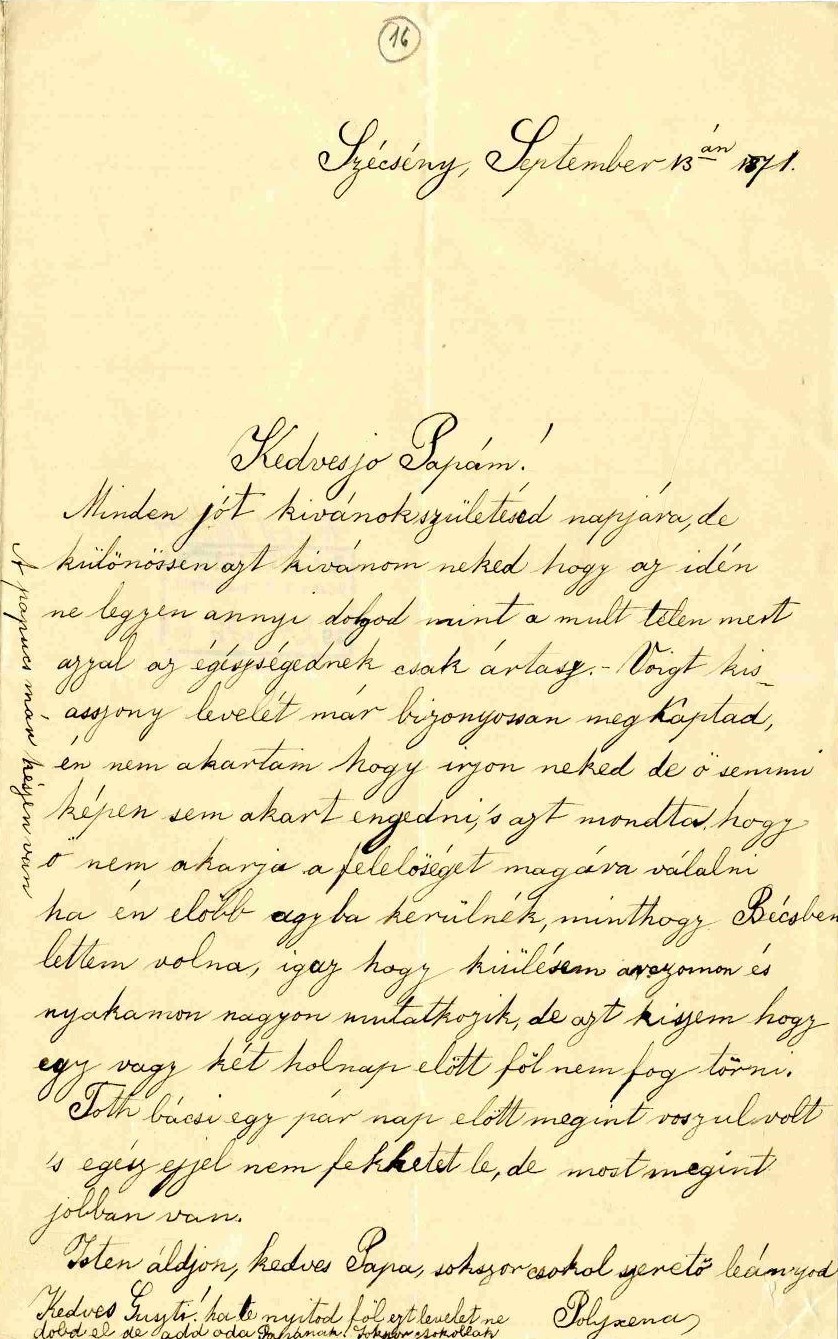 16
Szécsény, September 13 án 1871.
Kedvesjo Papám!
Minden jót kivánok születésed napjára, de
különössen azt kivánom neked hogy az idén
ne legyen annyi dolgod mint a mult télen mert
azzal az égészségednek csak ártasz. - Voigt kis_
asszony levelét már bizonyossan meg kaptad,
én nem akartam hogy irjon neked de ö semmi
képen sem akart engedni, 's azt mondta, hogy
ö nem akarja a felelöséget magára válalni
ha én elöbb agyba kerülnék, minthogy Bécsben
lettem volna, igaz hogy kiülésem arczomon és
nyakamon nagyon mutatkozik, de azt hiszem hogy
egy vagy két holnap elött föl nem fog törni.
Toth bácsi egy pár nap elött megint roszul volt
's egész ejjel nem fekhetet le, de most megint
jobban van.
Isten áldjon, kedves Papa, sokszor csokol szeretö leányod
Polyxena
Kedves Guszti! ha te nyitod föl ezt levelet ne
dobd el de add oda Papának. Sokszor csokollak
A papucs már készen van